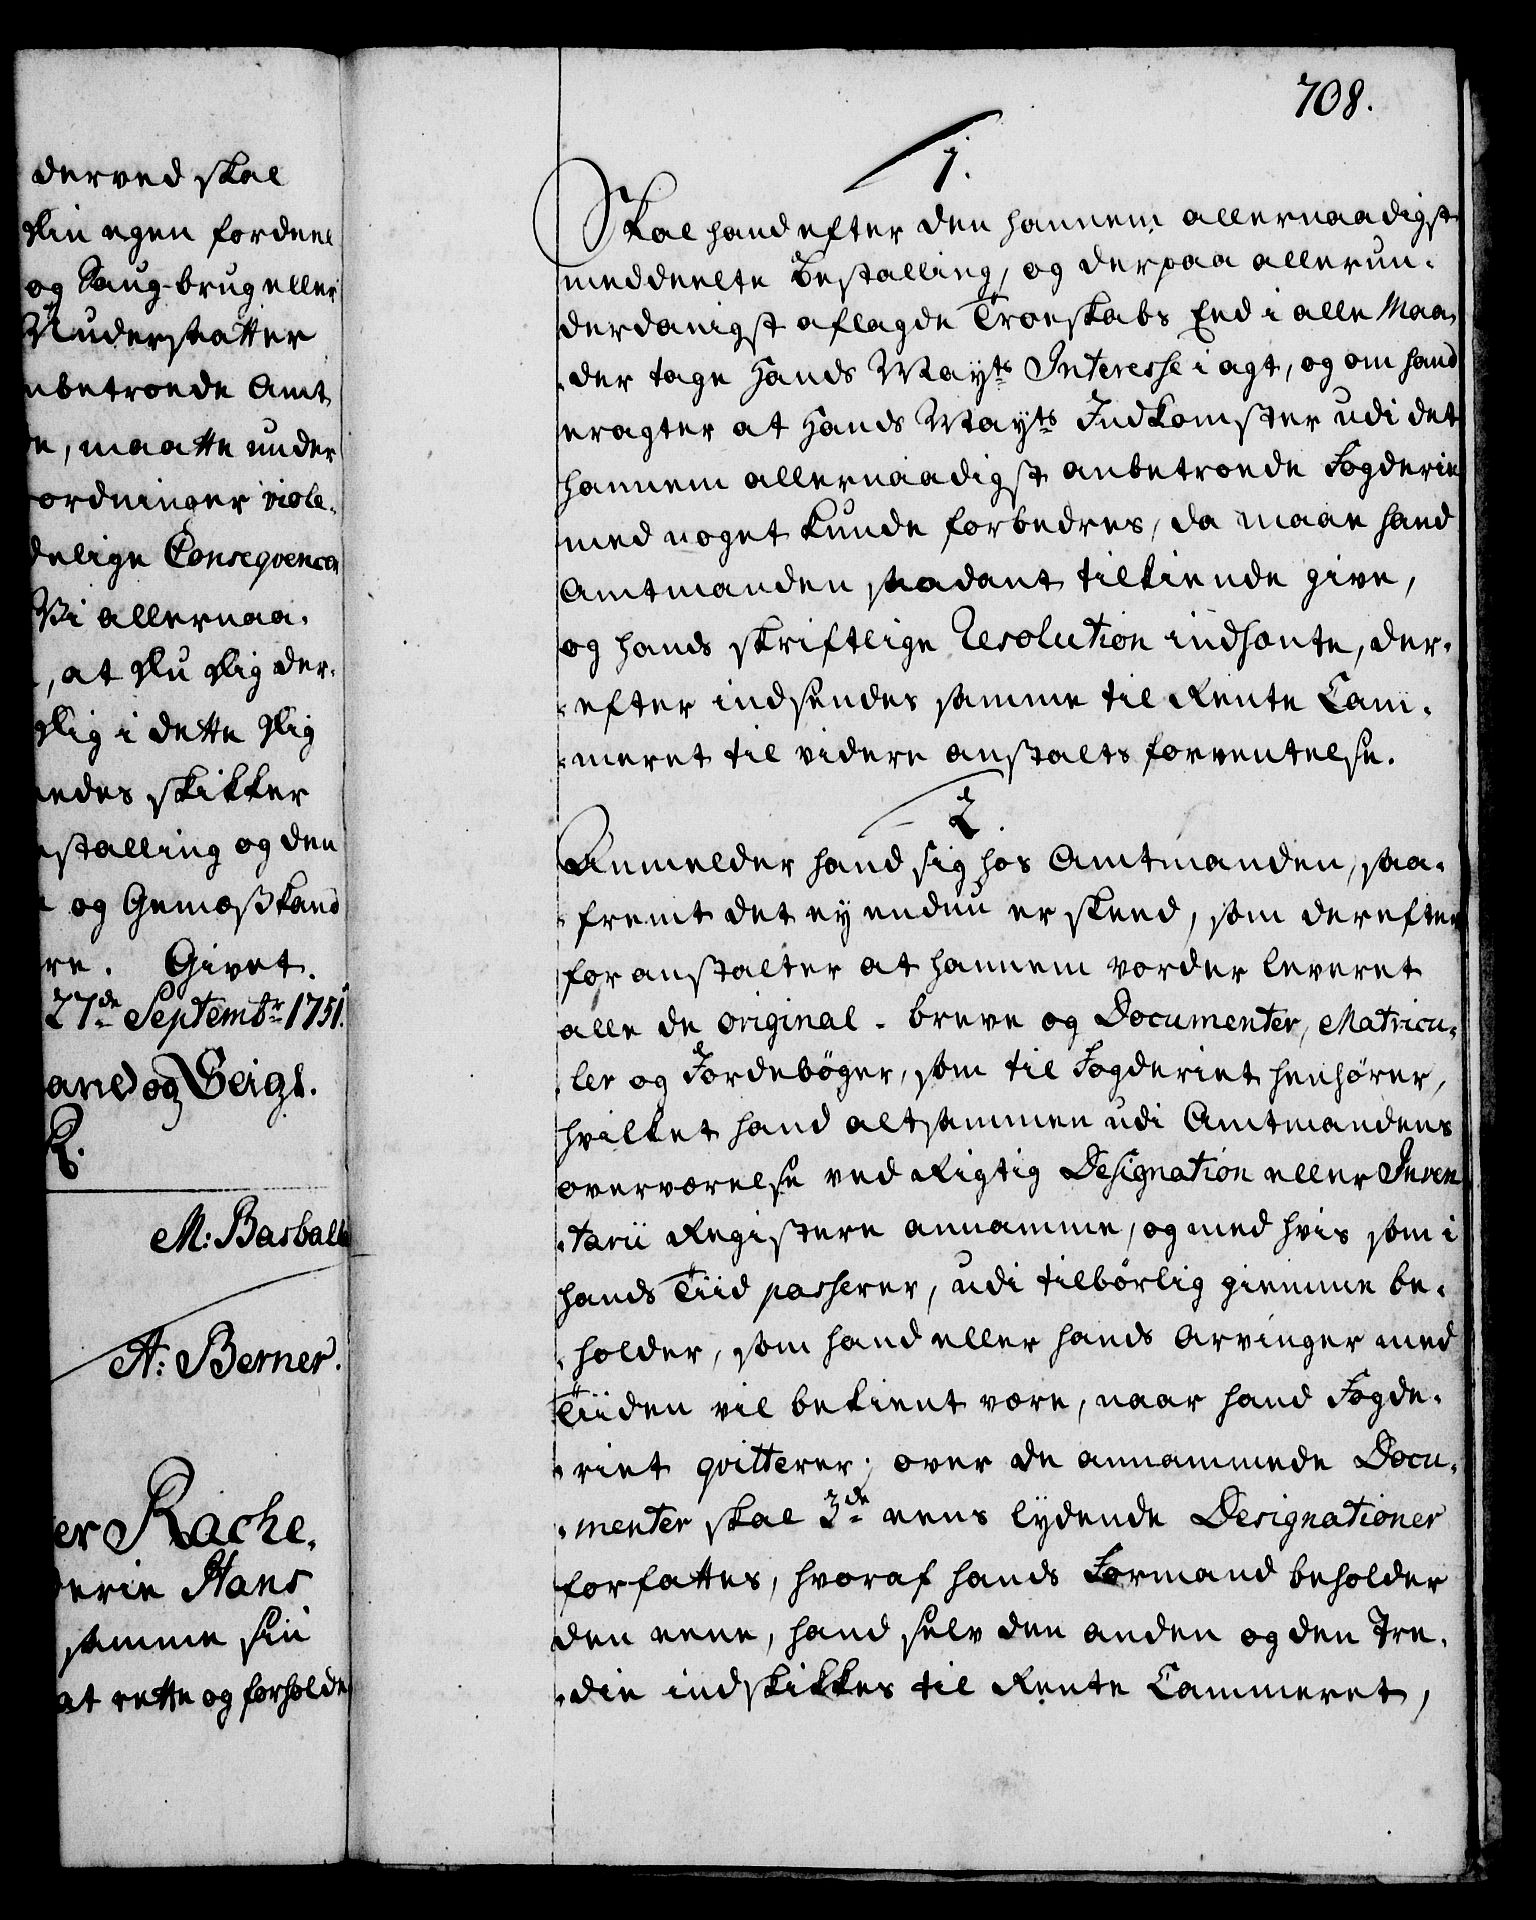 derved skal
Din egen fordeel
og Saug-brug eller
Understatter
nbetroede Amt
e, maatte under
ordninger viole-
delige Consequencer
Vi allernaa-
, at Du Dig der-
Dig i dette Dig
ledes skikker
stalling og den
og Gemæß kand
re. Givet.
27de Septembr 1751.
and og Seigl.
R.
M: Basballe
A: Berner.
er Rache,
derie Hans
samme sin
at rette og forholde
708.
1.
Skal hand efter den hannem allernaadigst
meddeelte Bestalling, og derpaa allerun-
derdanigst aflagde Troeskabs Eed i alle Maa-
der tage Hands Mayts Interesse i agt, og om hand
eragter at Hands Mayts Indkomster udi det
hannem allernaadigst anbetroede Fogderie
med noget kunde forbedres, da maae hand
Amtmanden saadant tilkiende give,
og hands skriftlige Resolution indhente, der-
efter indsendes samme til Rente Cam-
meret til videre anstalts forventelse.
2
Anmelder hand sig hos Amtmanden, saa-
fremt det ey endnu er skeed, som derefter
foranstalter at hannem vorder leveret
alle de original-breve og Documenter, Matricu-
ler og Jordebøger, som til Fogderiet henhører,
hvilket hand altsammen udi Amtmandens
overværelse ved Rigtig Designation eller Inven
tarii Registere annamme, og med hvis som i
hands Tiid passerer, udi tilbørlig giemme be-
holder, som hand eller hands Arvinger med
Tiiden vil bekient være, naar hand Fogde-
riet qvitterer; over de annammede Docu-
menter skal 3de eens lydende Designationer
forfattes, hvoraf hands Formand beholder
den eene, hand selv den anden og den Tre-
die indskikkes til Rente Cammeret,